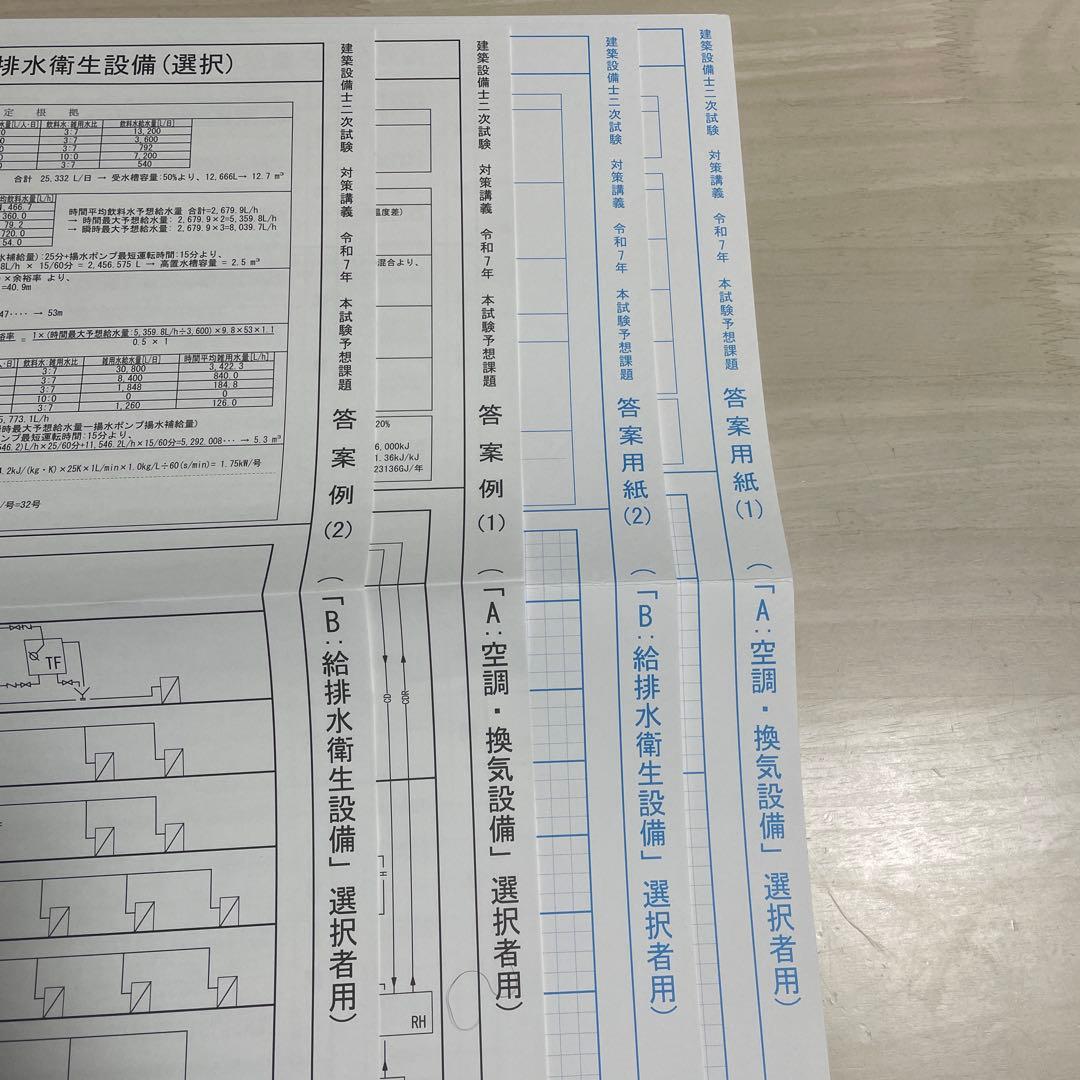 排水衛生設備(選択)
定 根 拠
水量[L/人・日] 飲料水:雑用水比 飲料水給水量[L/日]
0 3:7 13,200
0 3:7 3,600
0 3:7 792
0 10:0 7,200
0 3:7 540
合計 25,332 L/日 → 受水槽容量:50%より、12,666L→ 12.7 m³
平均飲料水量[L/h]
1,466.7
360.0
79.2
720.0
54.0
時間平均飲料水予想給水量 合計=2,679.9L/h
→ 時間最大予想給水量: 2,679.9×2=5,359.8L/h
→ 瞬時最大予想給水量: 2,679.9×3=8,039.7L/h
水補給量):25分+揚水ポンプ最短運転時間:15分より、
8L/h × 15/60分 = 2,456.575 L → 高置水槽容量 = 2.5 m³
×余裕率 より、
=40.9m
47‥‥ → 53m
裕率 = 1×(時間最大予想給水量:5,359.8L/h÷3,600)×9.8×53×1.1
0.5 × 1
人・日] 飲料水:雑用水比 雑用水給水量[L/日] 時間平均雑用水量[L/h]
3:7 30,800 3,422.3
3:7 8,400 840.0
3:7 1,848 184.8
10:0 0 0
3:7 1,260 126.0
5,773.1L/h
時最大予想給水量ー揚水ポンプ揚水補給量)
ンプ最短運転時間:15分より、
546.2)L/h×25/60分+11,546.2L/h×15/60分=5,292.008‥‥ → 5.3 m³
4.2kJ/(kg・K)×25K×1L/min×1.0kg/L÷60(s/min)= 1.75kW/号
/号=32号
TF
建築設備士二次試験 対策講義 令和7年 本試験予想課題 答案例(2) (「B:給排水衛生設備」選択者用)
温度差)
混合より、
20%
6,000kJ
1.36kJ/kJ
23136GJ/年
CD
CDR
H
RH
建築設備士二次試験 対策講義 令和7年 本試験予想課題 答案例(1) (「A:空調・換気設備」選択者用)
建築設備士二次試験 対策講義 令和7年 本試験予想課題 答案用紙(2) (「B:給排水衛生設備」選択者用)
建築設備士二次試験 対策講義 令和7年 本試験予想課題 答案用紙(1) (「A:空調・換気設備」選択者用)